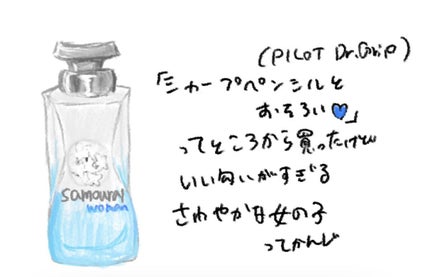 (PILOT Dr.Grip)
「シャープペンシルと
おそろい💙」
ってところから買ったけど
いい匂いがすぎる
さわやかな女の子
ってかんじ
samourai
woman